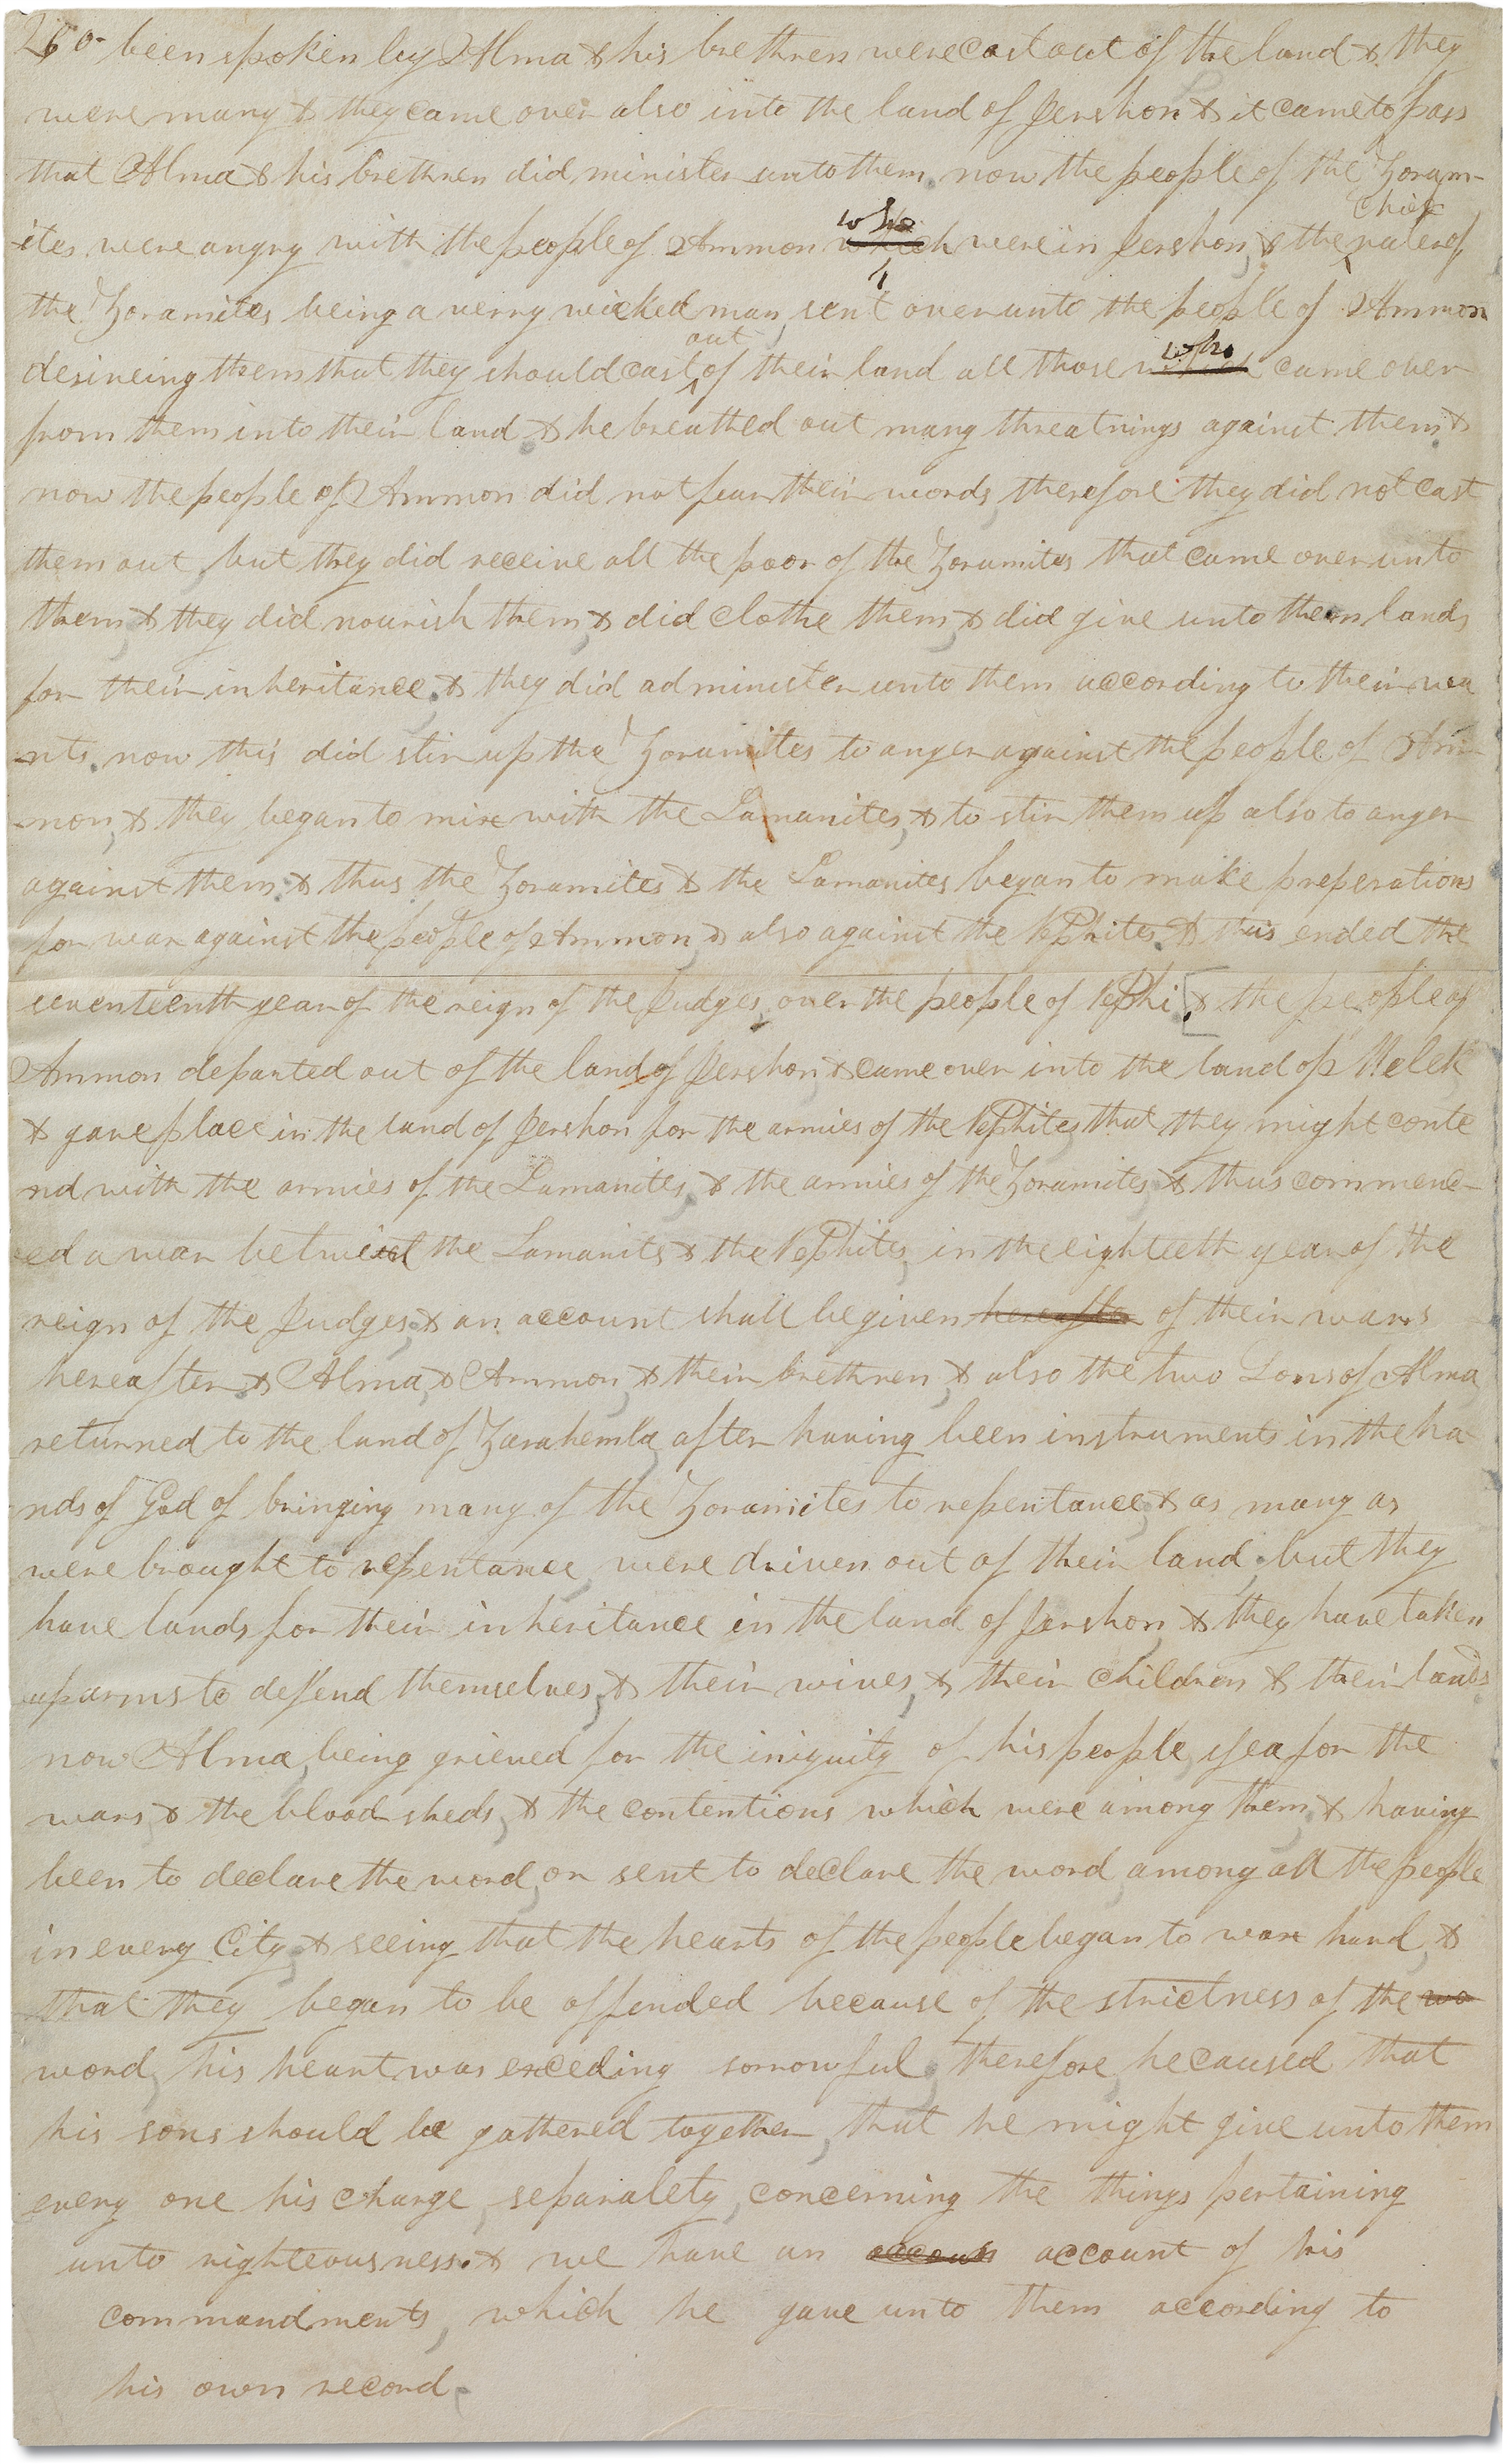 260 been spoken by Alma & his brethren were cast out of the land & they
were many & they came over also into the land of Jershon & it came to pass
that Alma & his brethren did minister unto them. now the people of the Zoram-
chief
who
-ites were angry with the people of Ammon which were in Jershon, & the ruler of
the Zoramites being a verry wicked man, sent over unto the people of Ammon
out
who
desireing them that they should cast of their land all those which came over
from them into their land & he breathed out many threatnings against them &
now the people of Ammon did not fear their words, therefore they did not cast
them out, but they did receive all the poor of the Zoramites that came over unto
them, & they did nourish them, & did clothe them, & did give unto them lands
for their inheritance. & they did administer unto them according to their wa
-nts. now this did stir up the Zoramites to anger against the people of Am-
-mon, & they began to mix with the Lamanites, & to stir them up also to anger
against them. & thus the Zoramites & the Lamanites began to make preperations
for war against the people of Ammon, & also against the Nephites. & thus ended the
seventeenth year of the reign of the Judges, over the people of Nephi. [& the people of
Ammon departed out of the land of Jershon & came over into the land of Melek
& gave place in the land of Jershon for the armies of the Nephites, that they might conte
nd with the armies of the Lamanites, & the armies of the Zoramites, & thus commenc-
ed a war betwixt the Lamanits & the Nephites, in the eighteeth year of the
reign of the Judges, & an account shall be given hereafter of their wars
hereafter. & Alma, & Ammon, & their brethren, & also the two Sons of Alma
returned to the land of Zarahemla, after having been instruments in the ha
nds of God of bringing many of the Zoramites to repentance, & as many as
were brought to repentance, were driven out of their land; but they
have lands for their inheritance in the land of Jershon, & they have taken
up arms to defend themselves, & their wives, & their children & their lands.
now Alma, being grieved for the iniquity of his people, yea for the
wars & the blood sheds, & the contentions which were among them, & having
been to declare the word, or sent to declare the word, among all the people
in every City; & seeing that the hearts of the people began to wax hard, &
that they began to be offended because of the strictness of the wo
word, his heart was exceding sorrowful; therefore, he caused that
his sons should be gathered together, that he might give unto them
every one his charge, separately, concerning the things pertaining
unto righteousness. & we have an accoun account of his
commandments, which he gave unto them according to
his own record.